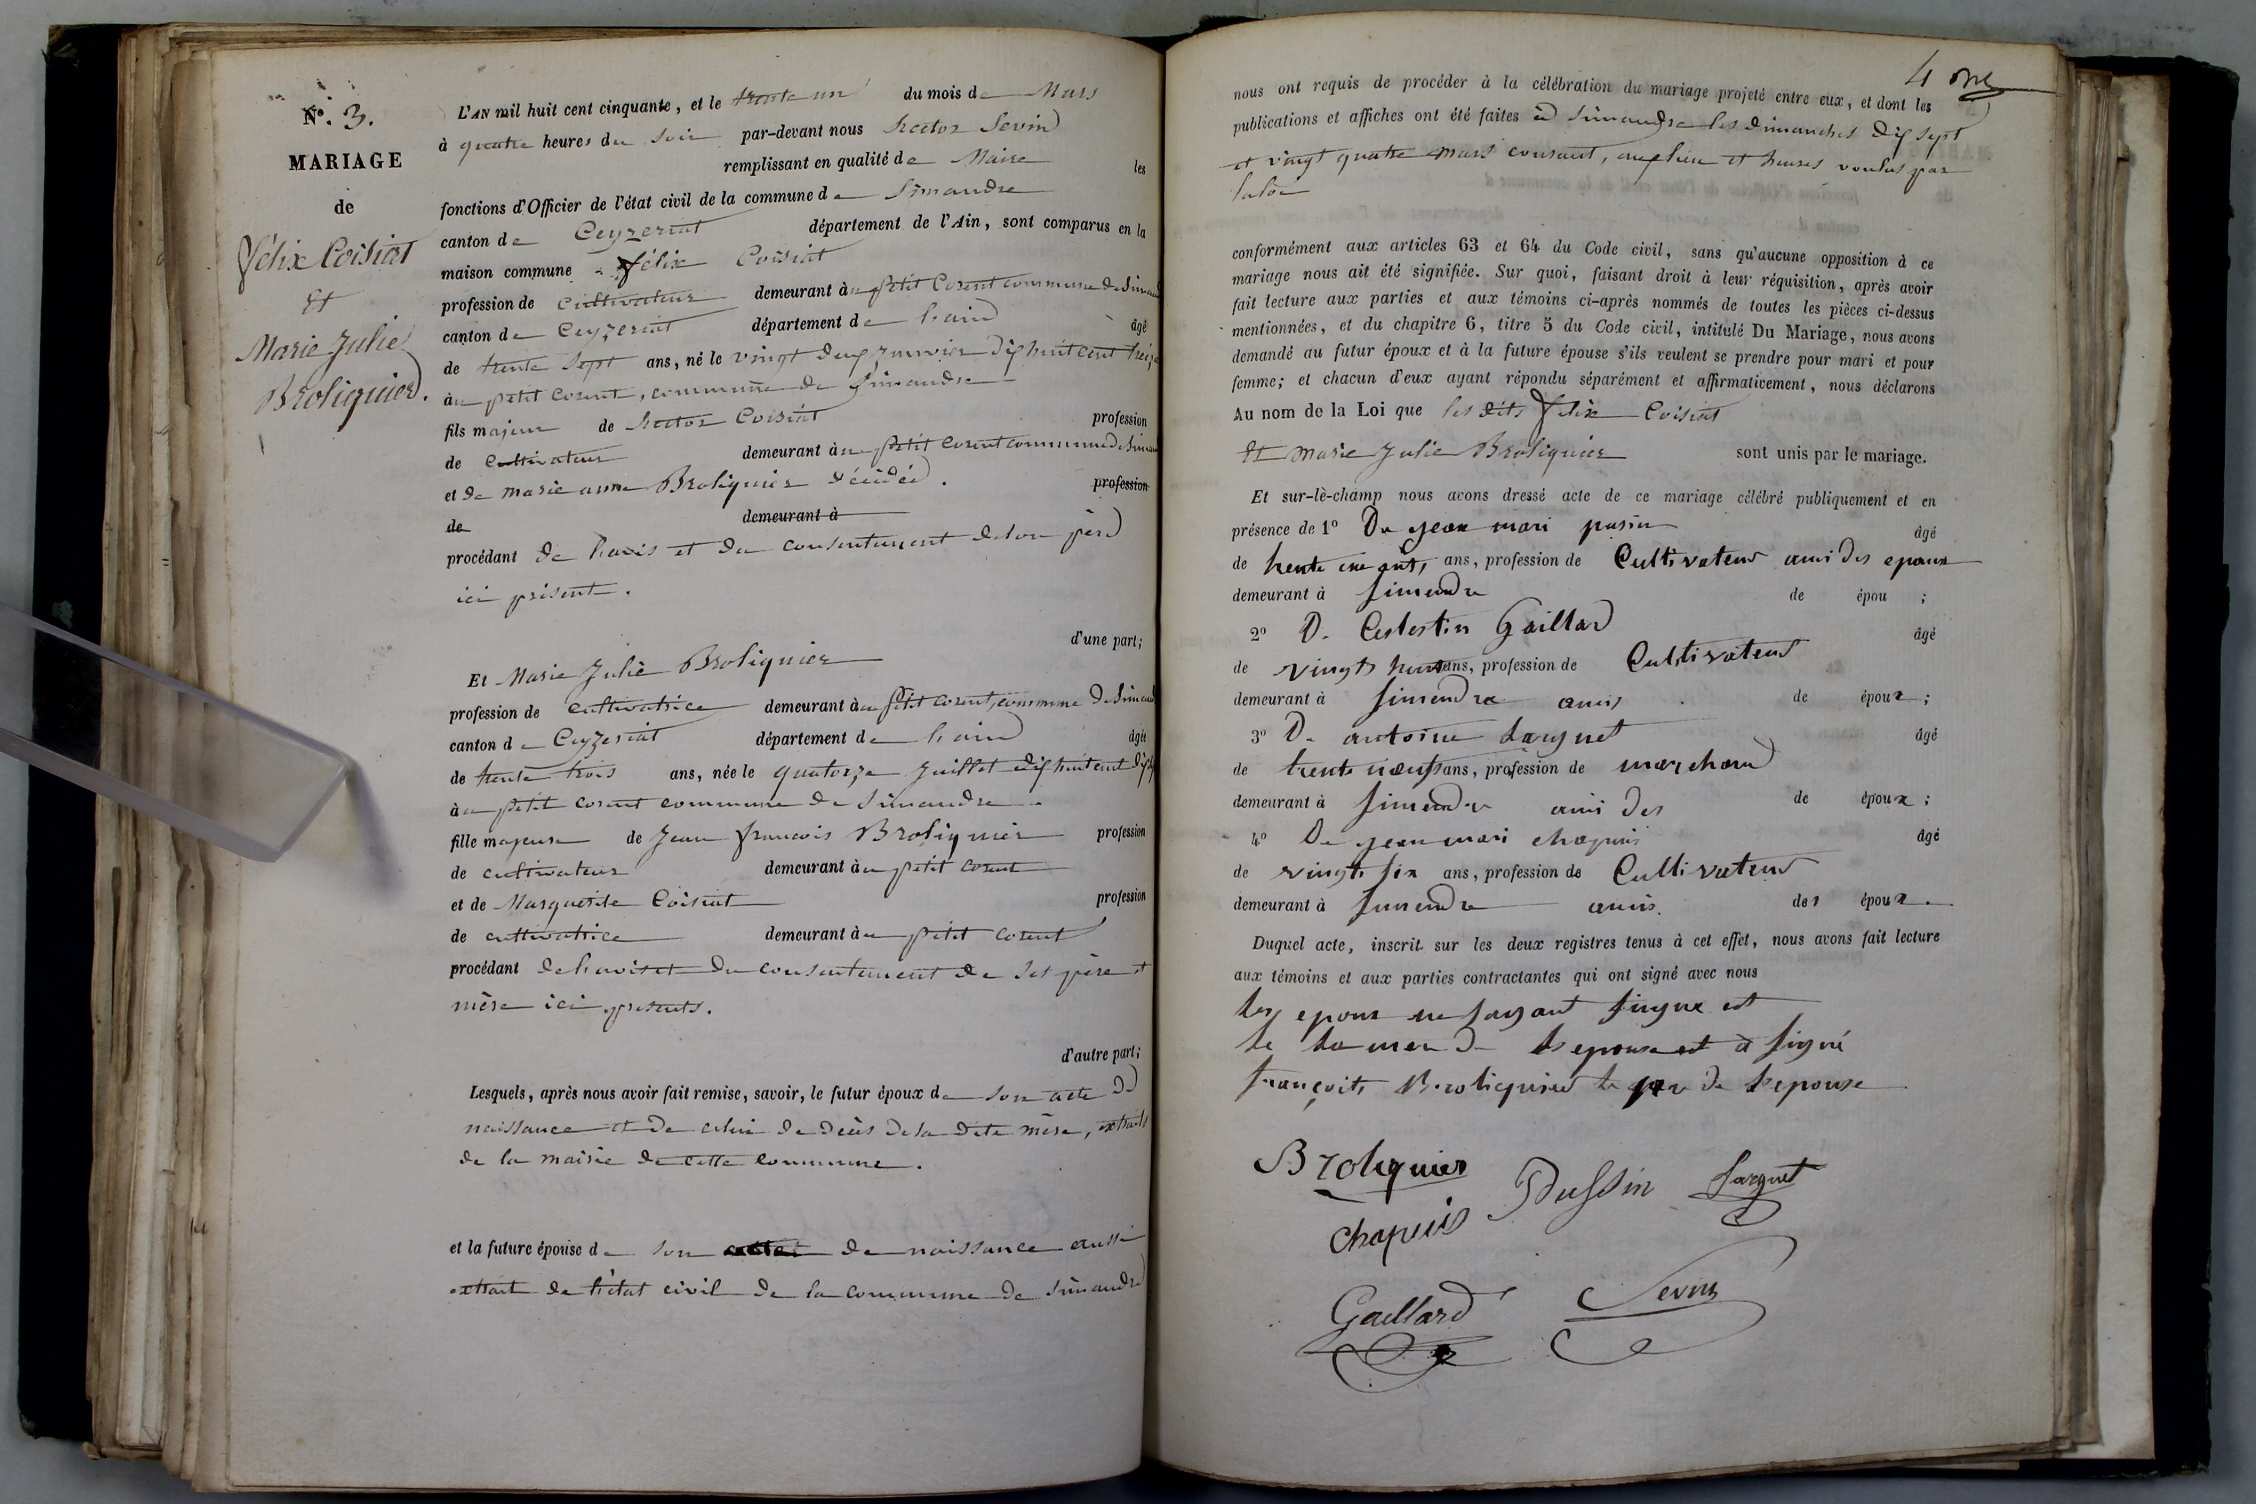 N°. 3.
MARIAGE
de
félix Coisiat
Et
Marie Julie
Broliquier.
L'AN mil huit cent cinquante, et le trente un du mois de Mars
à quatre heures du soir par-devant nous hector Sevin
remplissant en qualité de Maire les
fonctions d'Officier de l'état civil de la commune de Simandre
canton de Ceyzeriat département de l'Ain, sont comparus en la
maison commune félix Coisiat
profession de cultivateur demeurant à petit Corent commune de Simand
canton de Ceyzeriat département de l'ain âgé
de trente sept ans, né le vingt deux janvier dix huit cent treize
à petit corent, commune de Simandre
fils majeur de hector Coisiat profession
de cultivateur demeurant à petit corent commune de Siman
et de marie anne Broliquier décédée. profession
de demeurant à
procédant de l'avis et du consentement de son père
ici présent.
d'une part;
Et Marie Julie Broliquier
profession de cultivatrice demeurant à petit corent, commune de Simand
canton de Ceyzeriat département de l'ain âgée
de trente trois ans, née le quatorze juillet dix huit cent
à petit corent commune de Simandre
fille majeure de Jean françois Broliquier profession
de cultivateur demeurant à petit corent
et de Marguerite Coisiat profession
de cultivatrice demeurant à petit corent
procédant de l'avis et du consentement de ses père et
mère ici présents.
d'autre part;
Lesquels, après nous avoir fait remise, savoir, le futur époux de son acte de
naissance et de celui de décès de sa dite mère, extraits
de la mairie de cette commune.
et la future épouse de son de naissance aussi
extrait de l'état civil de la commune de Simandre
4
nous ont requis de procéder à la célébration du mariage projeté entre eux, et dont les
publications et affiches ont été faites à Simandre les dimanches dix sept
et vingt quatre mars courant, aux lieu et heures voulus par
la loi
conformément aux articles 63 et 64 du Code civil, sans qu'aucune opposition à ce
mariage nous ait été signifiée. Sur quoi, faisant droit à leur réquisition, après avoir
fait lecture aux parties et aux témoins ci-après nommés de toutes les pièces ci-dessus
mentionnées, et du chapitre 6, titre 5 du Code civil, intitulé Du Mariage, nous avons
demandé au futur époux et à la future épouse s'ils veulent se prendre pour mari et pour
femme; et chacun d'eux ayant répondu séparément et affirmativement, nous déclarons
Au nom de la Loi que les dits félix Coisiat
Et marie Julie Broliquier sont unis par le mariage.
Et sur-lè-champ nous avons dressé acte de ce mariage célébré publiquement et en
présence de 1° De jean mari pusin âgé
de trente ans, profession de Cultivateur ami des epoux
demeurant à Simendre de épou ;
2° D. Celestin Gaillard âgé
de vingt huit ans, profession de Cultivateur
demeurant à Simendre amis de époux ;
3° De antoine Larguet âgé
de trente neuf ans, profession de marchand
demeurant à Simendre ami des de époux ;
4° De jean mari chapuis âgé
de vingt six ans, profession de Cultivateur
demeurant à Simendre amis. des époux.
Duquel acte, inscrit sur les deux registres tenus à cet effet, nous avons fait lecture
aux témoins et aux parties contractantes qui ont signé avec nous
les epoux ne sayant singne et
le la mer de lepouse et à signé
françoits Broliquier le per de lepouse
Broliquier
Pussin
Larguet
Chapuis
Gaillard
Sevin